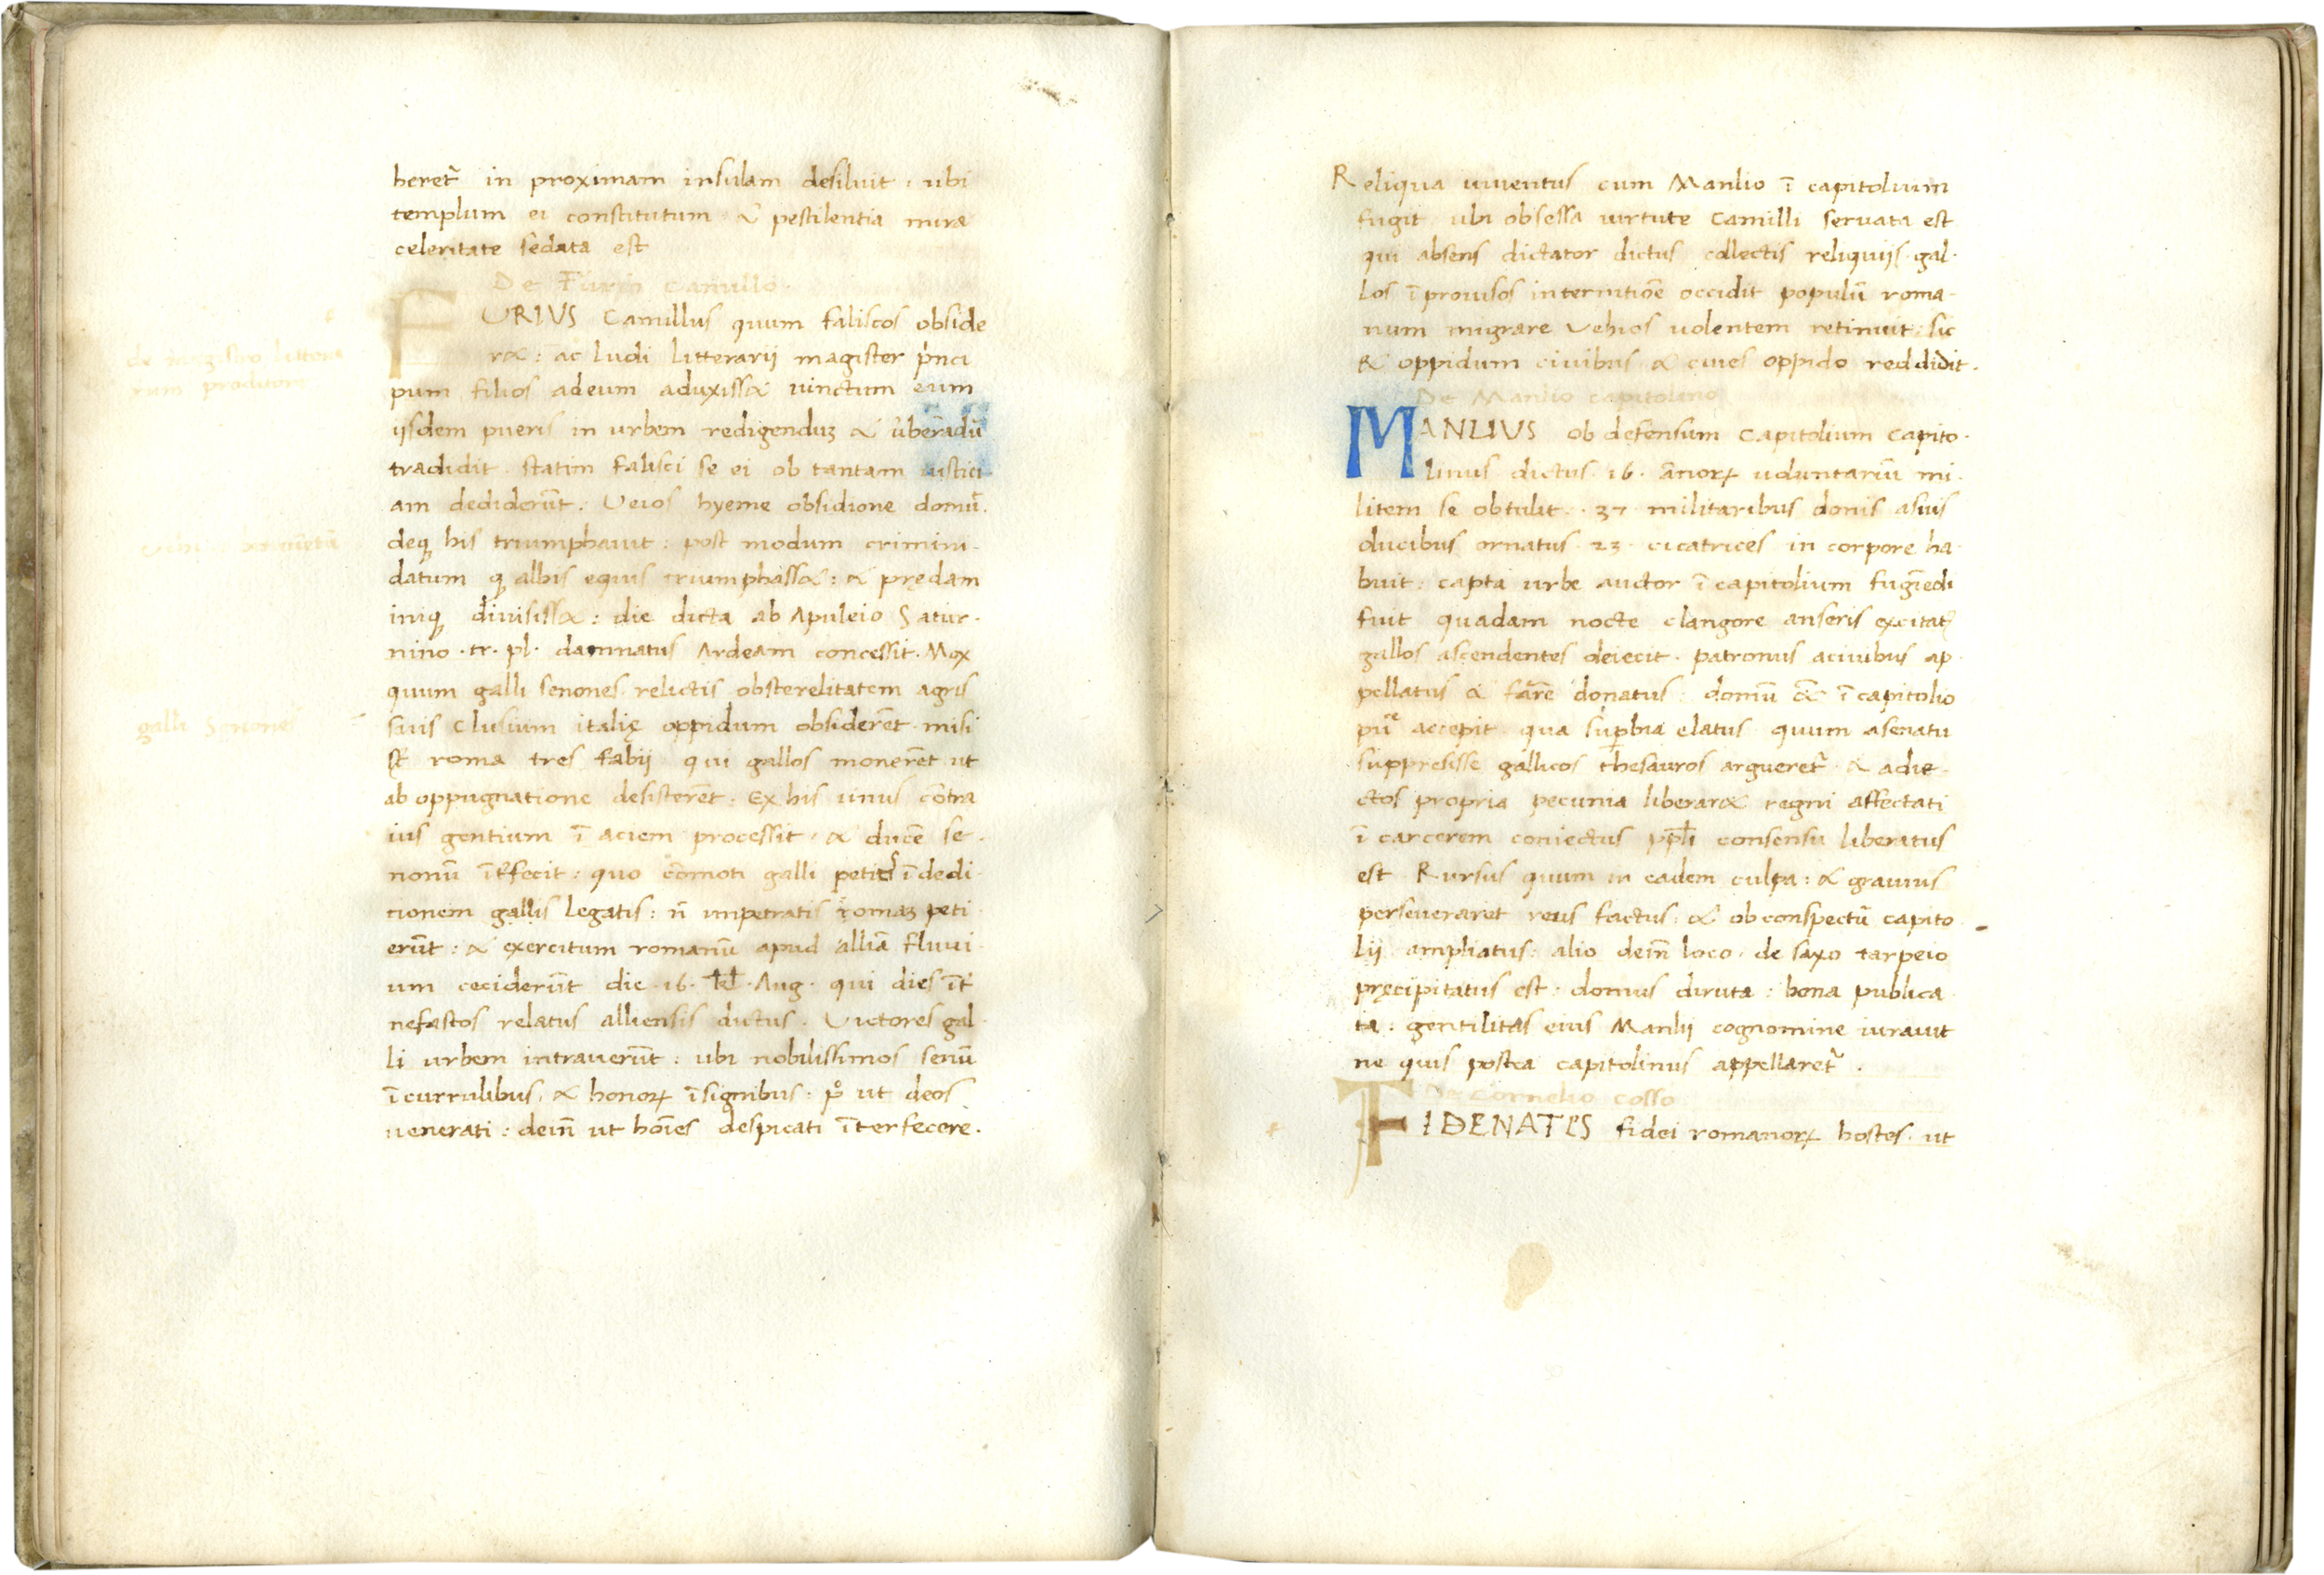 beret᷑ in proximam insulam desiluit · ubi
templum ei constitutum & pestilentia mira
celeritate sedata est
De Furio Camillo
FURIUS Camillus quum faliscos obside
r&: ac ludi litterarij magister p̍nci
pum filios adeum aduxiss& uinctum eum
ijsdem pueris in urbem redigenduȝ & ũberãdũ
tradidit · statim falisci se ei ob tantam iustici
am dediderũt: Veios hyeme obsidione domũ.
deqꝫ his triumphauit: post modum crimini-
datum qꝫ albis equis triumphass&: & prędam
iniqꝫ diuisiss&: die dicta ab Apuleio Satur-
nino · tr. pl· damnatus Ardeam concessit. Mox
quum galli senones relictis obsterelitatem agris
suis Clusium italię oppidum obsiderẽt · misi
sт̃ roma tres fabij qui gallos monerẽt ut
ab oppugnatione desisterẽt: Ex his unus cõtra
ius gentium ĩ aciem processit · & ducẽ se-
nonũ ĩt᷑fecit: quo cõmoti galli petit᷑ ĩ dedi-
tionem gallis legatis: ñ impetratis romaȝ peti
erũt: & exercitum romanũ apud alliã fluui-
um ceciderũt die · 16 · kl̃ · Aug · qui dies ĩt᷑
nefastos relatus alliensis dictus. Victores gal-
li urbem intrauerũt: ubi nobilissimos senũ
ĩ currulibus, & honoꝝ ĩsignibus: pº ut deos
uenerati: deiñ ut hõies despicati ĩterfecere.
de magistro littera
rum proditore
galli Senones
Reliqua iuuentus cum Manlio ĩ capitolium
fugit ubi obsessa uirtute Camilli seruata est
qui absens dictator dictus collectis reliquijs · gal-
los ĩprouisos internitiõe occidit populũ roma-
num migrare Vehios uolentem retinuit: sic
& oppidum ciuibus & ciues oppido reddidit.
De Manlio capitolino
MANLIUS ob defensum Capitolium Capito-
linus dictus 16 · ãnoꝝ uoluntariũ mi-
litem se obtulit · 37 militaribus donis asuis
ducibus ornatus · 23 · cicatrices in corpore ha
buit: capta urbe auctor ĩ capitolium fugiẽdi
fuit quadam nocte clangore anseris excitatꝰ
gallos ascendentes deiecit · patronus aciuibus ap-
pellatus & farẽ donatus: domũ & ĩ capitolio
pũe accepit qua sup̱bia elatus quum asenatu
suppresisse gallicos thesauros argueret᷑ & adie-
ctos propria pecunia liberar& regni affectati
ĩ carcerem coniectus pp̃li consensu liberatus
est Rursus quum in eadem culpa: & grauius
perseueraret reus factus: & ob conspectũ capito
lij ampliatus: alio deiñ loco · de saxo tarpeio
pręcipitatus est: domus diruta: bona publica
ta: gentilitas eius Manlij cognomine iurauit
ne quis postea capitolinus appellaret᷑.
De Cornelio cosso
FIDENATES fidei romanoꝝ hostes · ut